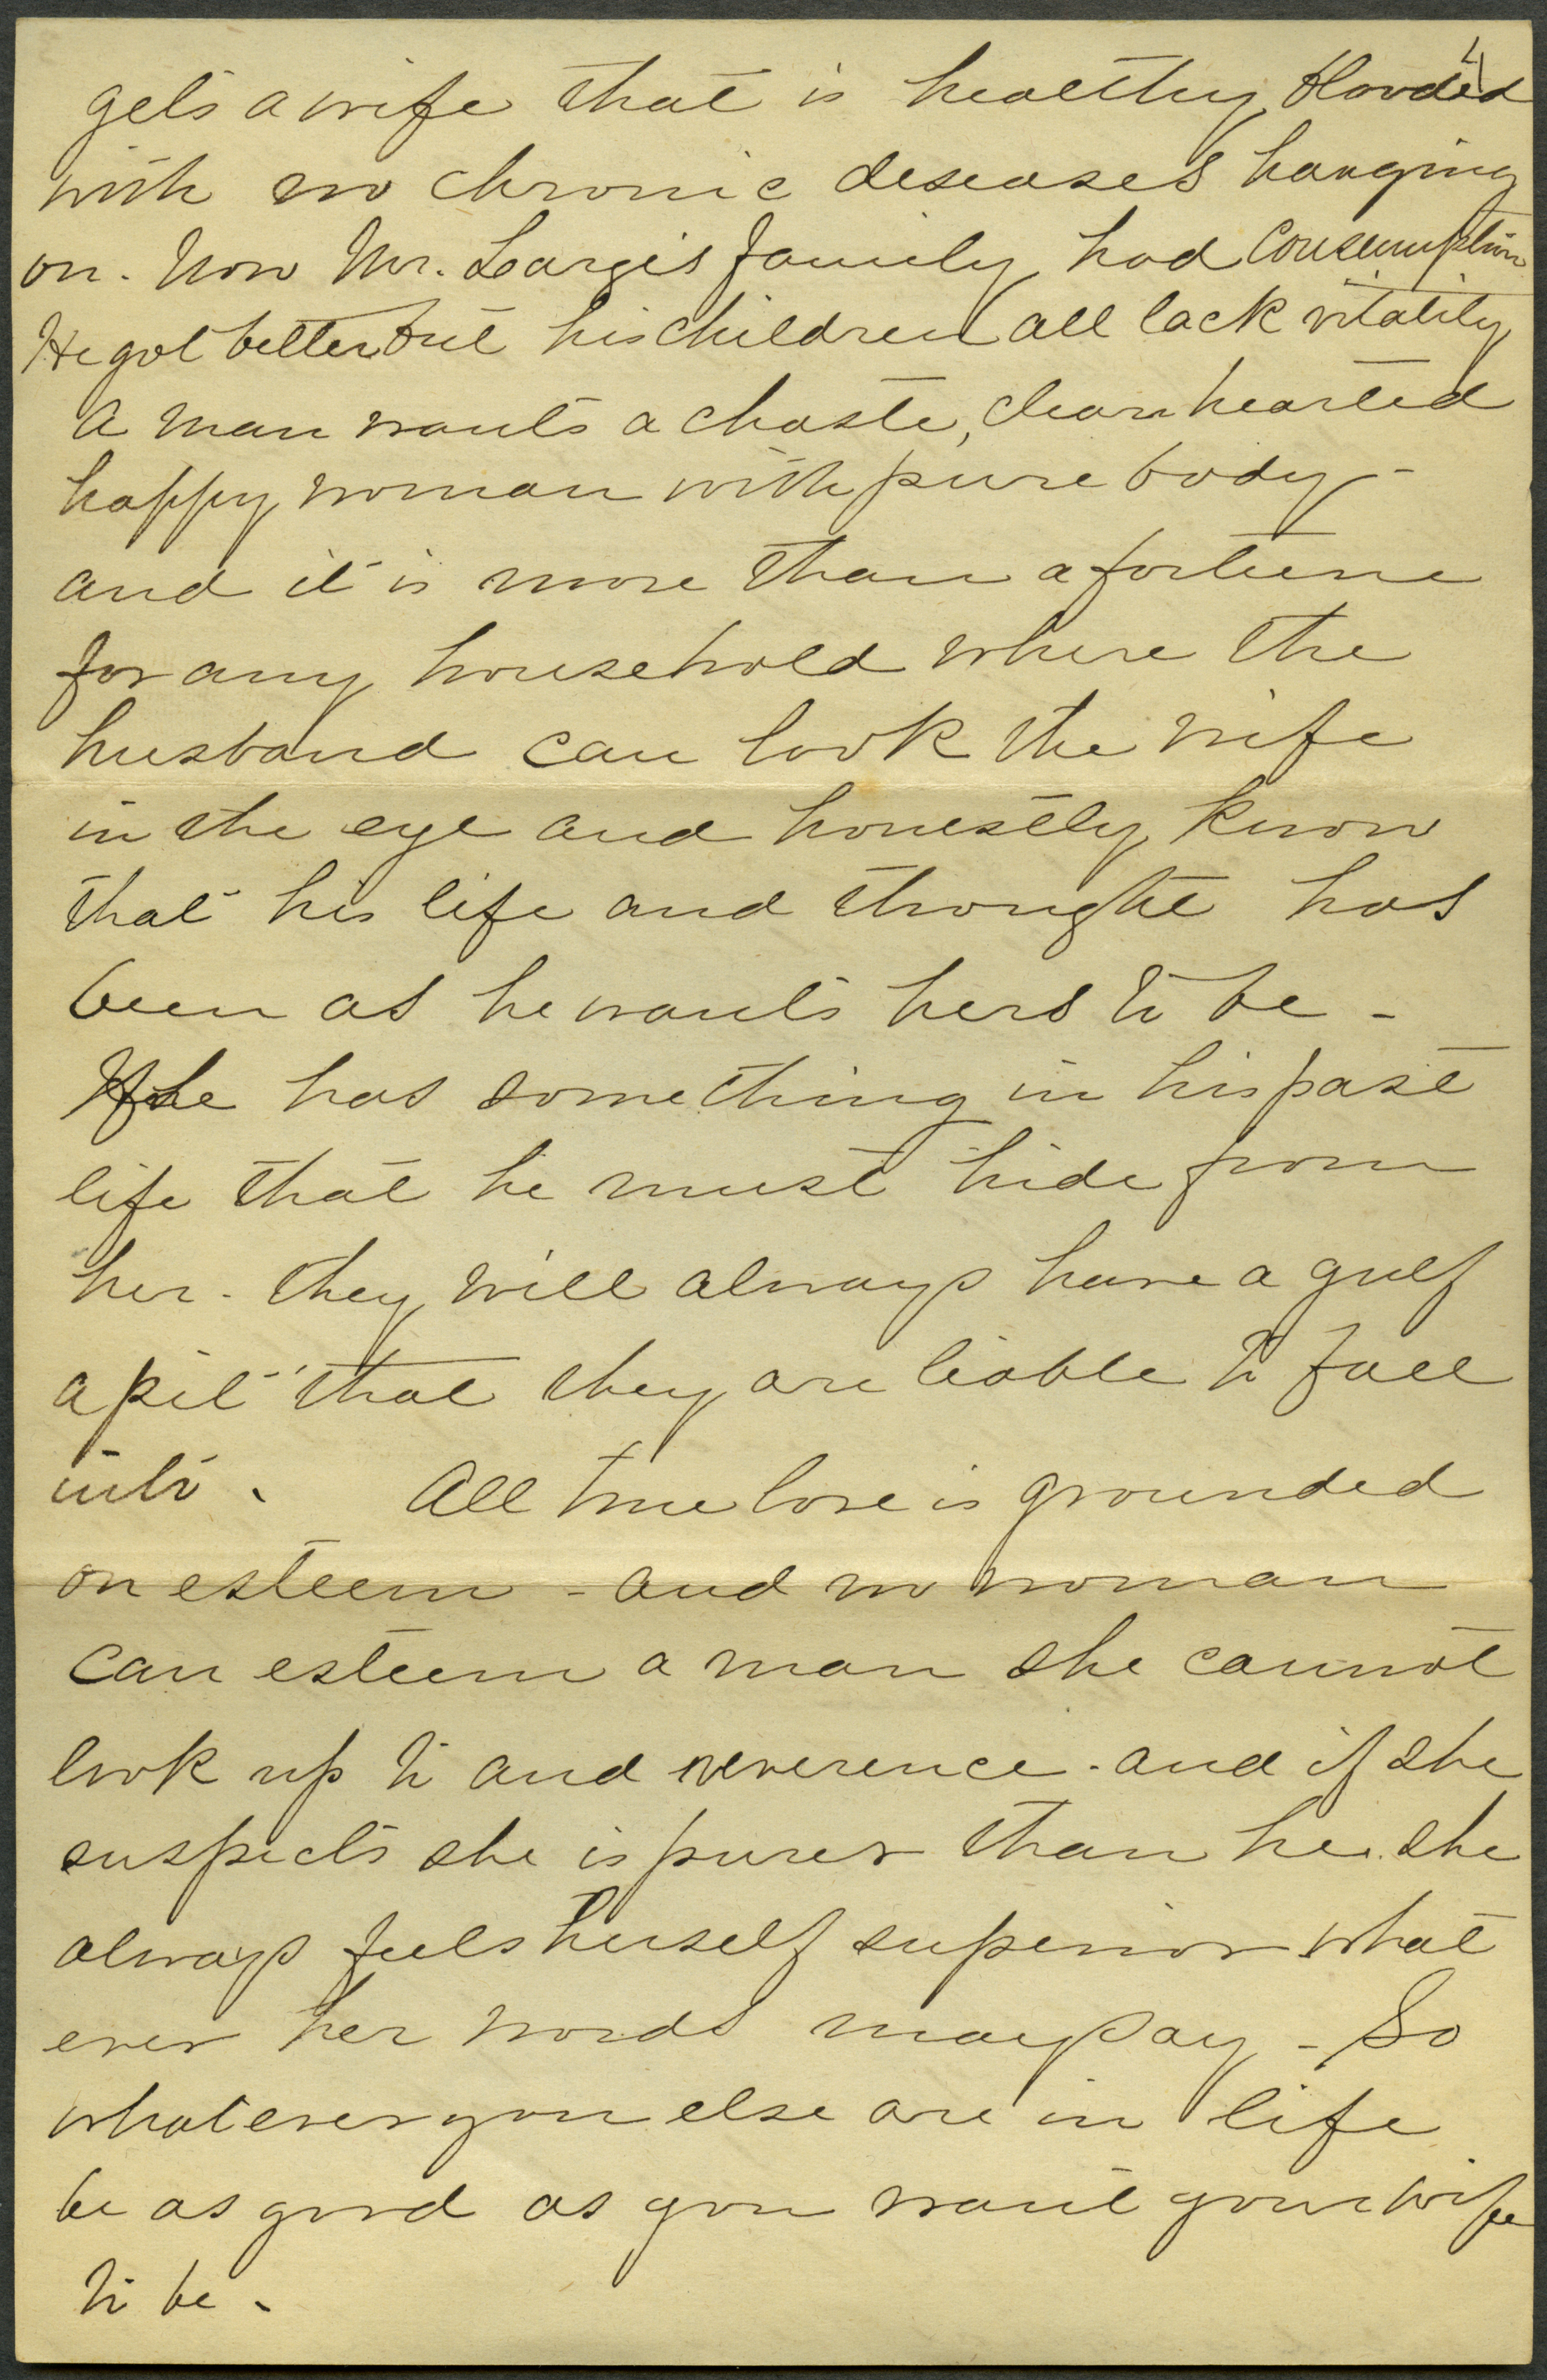 4
gets a wife that is healthy blooded
with no chronic deseases hanging
on. Now Mr. Largis family had Consumption
He got better but his children all lack vitality
A man wants a chaste, clean hearted
happy woman with pure body -
and it is more than a fortune
for any household where the
husband can look the wife
in the eye and honestly know
that his life and thought has
been as he wants hers to be -
If he has something in his past
life that he must hide from
her - they will always have a gulf
a pit that they are liable to fall
into. All true love is grounded
on esteem - and no woman
can esteem a man she cannot
look up to and reverence - and if she
suspects she is purer than he. she
always feels herself superior what
ever her words may say - So
whatever you else are in life
be as good as you want your wife
to be.